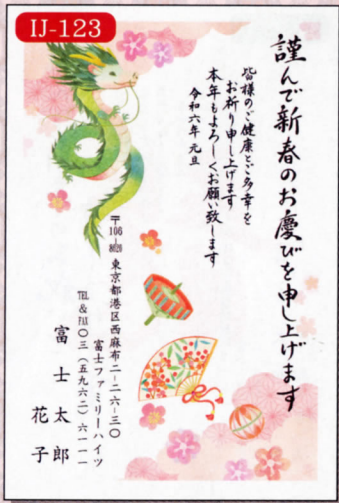 IJ-123
謹んで新春のお慶びを申し上げます
皆様のご健康とご多幸を
お祈り申し上げます
本年もよろしくお願い致します
令和六年 元旦
〒106-8020 東京都港区西麻布二-二六-三〇
富士ファミリーハイツ
TEL & FAX 〇三(五九六二)六一一一
富士太郎
花子